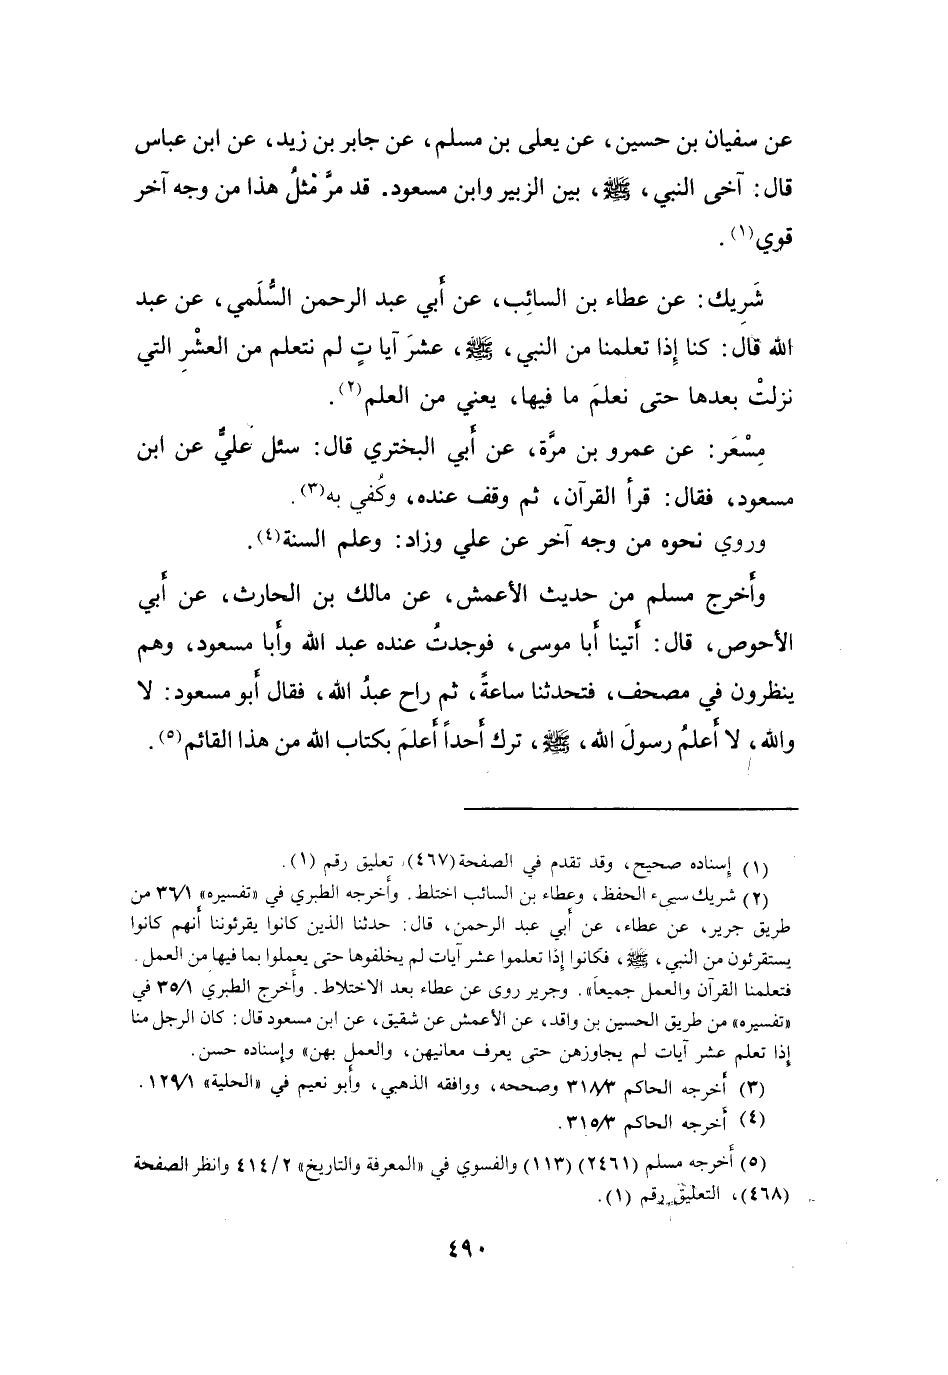 عن سفيان بن حسين، عن يعلى بن مسلم، عن جابر بن زيد، عن ابن عباس
قال: آخى النبي، ﷺ، بين الزبير وابن مسعود. قد مرَّ مْثلُ هذا من وجه آخر
قوي(١).
شَرِيك: عن عطاء بن السائِب، عن أَبي عبد الرحمن السُّلَمي، عن عبد
الله قال: كنا إِذا تعلمنا من النبي، ﷺ، عشرَ آيا تٍ لم نتعلم من العشْرِ التي
نزلتْ بعدها حتى نعلمَ ما فيها، يعني من العلم(٢).
مِسْعَر: عن عمرو بن مرَّة، عن أَبي البختري قال: سئل عليٌّ عن ابن
مسعود، فقال: قرأ القرآن، ثم وقف عنده، وكُفي به(٣).
وروي نحوه من وجه آخر عن علي وزاد: وعلم السنة(٤).
وأَخرج مسلم من حديث الأعمش، عن مالك بن الحارث، عن أَبي
الأحوص، قال: أَتينا أَبا موسى، فوجدتُ عنده عبد الله وأَبا مسعود، وهم
ينظرون في مصحف، فتحدثنا ساعةً، ثم راح عبدُ الله، فقال أَبو مسعود: لا
والله، لا أَعلمُ رسولَ الله، ﷺ، ترك أَحداً أَعلمَ بكتاب الله من هذا القائم(٥).
(١) إسناده صحيح، وقد تقدم في الصفحة (٤٦٧)، تعليق رقم (١).
(٢) شريك سيىء الحفظ، وعطاء بن السائب اختلط. وأَخرجه الطبري في «تفسيره» ٣٦/١ من
طريق جرير، عن عطاء، عن أَبي عبد الرحمن، قال: حدثنا الذين كانوا يقرئوننا أَنهم كانوا
يستقرئون من النبي، ﷺ، فكانوا إِذا تعلموا عشر آيات لم يخلفوها حتى يعملوا بما فيها من العمل.
فتعلمنا القرآن والعمل جميعاً». وجرير روى عن عطاء بعد الاختلاط. وأَخرج الطبري ٣٥/١ في
«تفسيره» من طريق الحسين بن واقد، عن الأعمش عن شقيق، عن ابن مسعود قال: كان الرجل منا
إِذا تعلم عشر آيات لم يجاوزهن حتى يعرف معانيهن، والعمل بهن» وإسناده حسن.
(٣) أَخرجه الحاكم ٣١٨/٣ وصححه، ووافقه الذهبي، وأَبو نعيم في «الحلية» ١٢٩/١.
(٤) أَخرجه الحاكم ٣١٥/٣.
(٥) أَخرجه مسلم (٢٤٦١) (١١٣) والفسوي في «المعرفة والتاريخ» ٤١٤/٢ وانظر الصفحة
(٤٦٨)، التعليق رقم (١).
٤٩٠